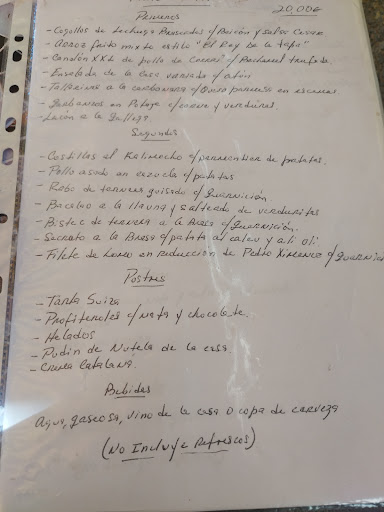 Primeros 20,00€
- Cogollos de Lechuga Braseados c/Bacón y salsa Cesar
- Arroz frito mixto estilo "El Rey de la Tapa"
- Canelón XXL de pollo de Corral c/Bechamel trufada
- Ensalada de la Casa variada c/atún
- Tallarines a la carbonara c/Queso parmesano en escamas
- Garbanzos en Potaje c/carne y verduras.
- Lacón a la Gallega
Segundos
- Costillas al Kalimocho c/parmentier de patatas.
- Pollo asado en cazuela c/patatas
- Rabo de ternera guisado c/Guarnición
- Bacalao a la llauna y salteado de verduritas
- Bistec de ternera a la Brasa c/Guarnición.
- Secreto a la Brasa c/patata al caliu y ali oli.
- Filete de Lomo en reducción de Pedro Ximenez c/guarnición
Postres
- Tarta Suiza
- Profiteroles c/nata y chocolate.
- Helados
- Pudin de Nutela de la casa.
- Crema Catalana.
Bebidas
Agua, gaseosa, vino de la casa o copa de cerveza
(No Incluye Refrescos)